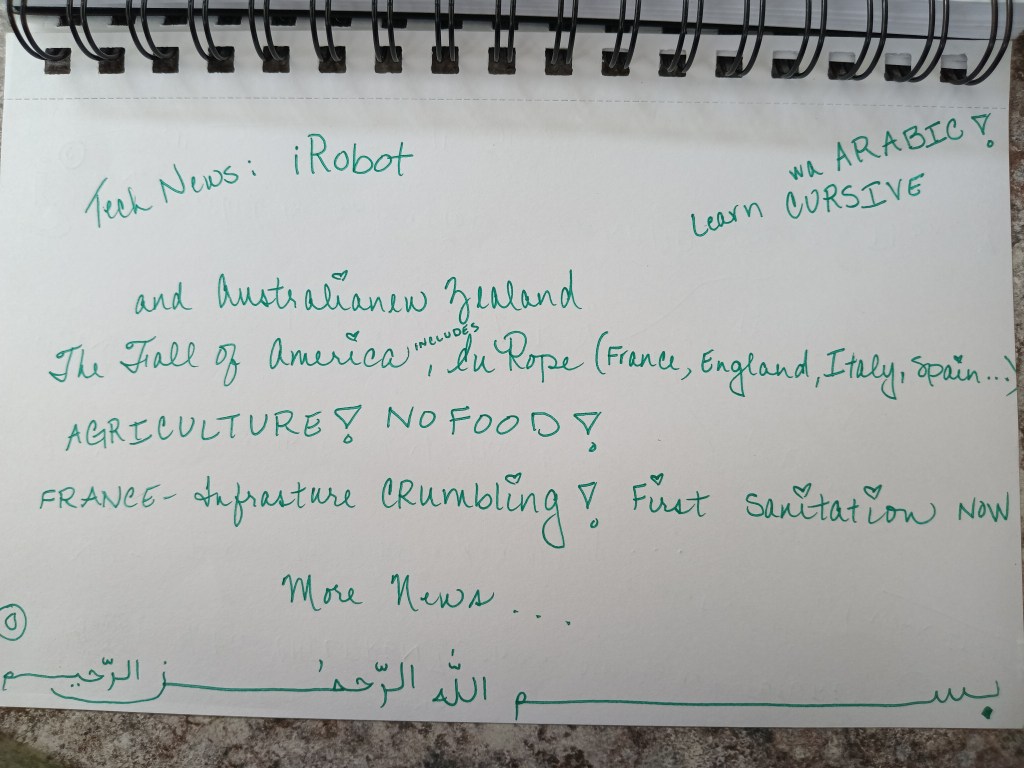 Tech News: iRobot
wa ARABIC!
Learn CURSIVE
and Australianew Zealand
The Fall of America, INCLUDES Eu'Rope (France, England, Italy, Spain...)
AGRICULTURE! NO FOOD!
FRANCE- Infrasture CRumbling! First Sanitation NOW
More News...
بسم اللّه الرّحمٰن الرّحيم